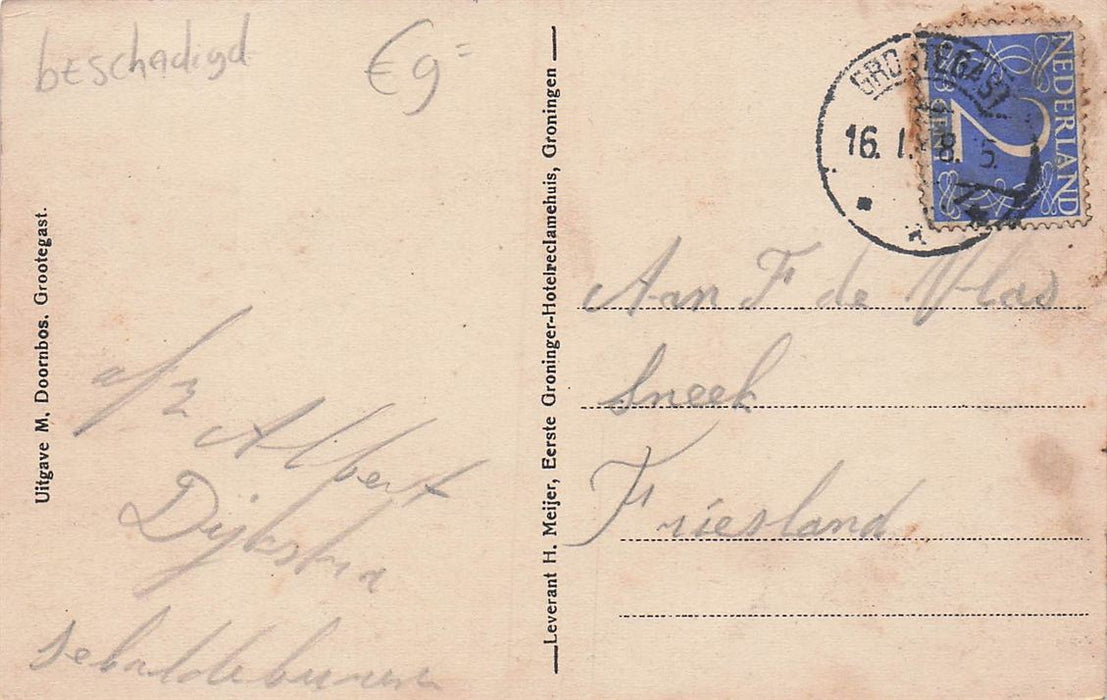 beschadigd
€ 9=
Uitgave M. Doornbos. Grootegast.
a/z
Albert
Dijkstra
Sebaldeburen
Leverant H. Meijer, Eerste Groninger-Hotelreclamehuis, Groningen
GROOTEGAST
16. 1. 8. 5.
NEDERLAND
2
CENT
Aan F de Vlas
Sneek
Friesland